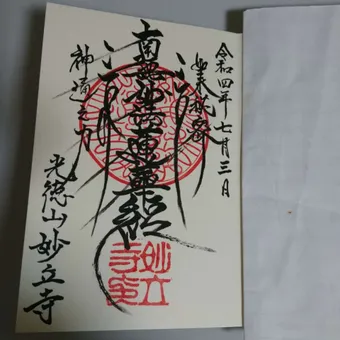 令和四年七月三日
如来秘密
南無妙法蓮華経
神通之力
光徳山妙立寺
妙立
寺印